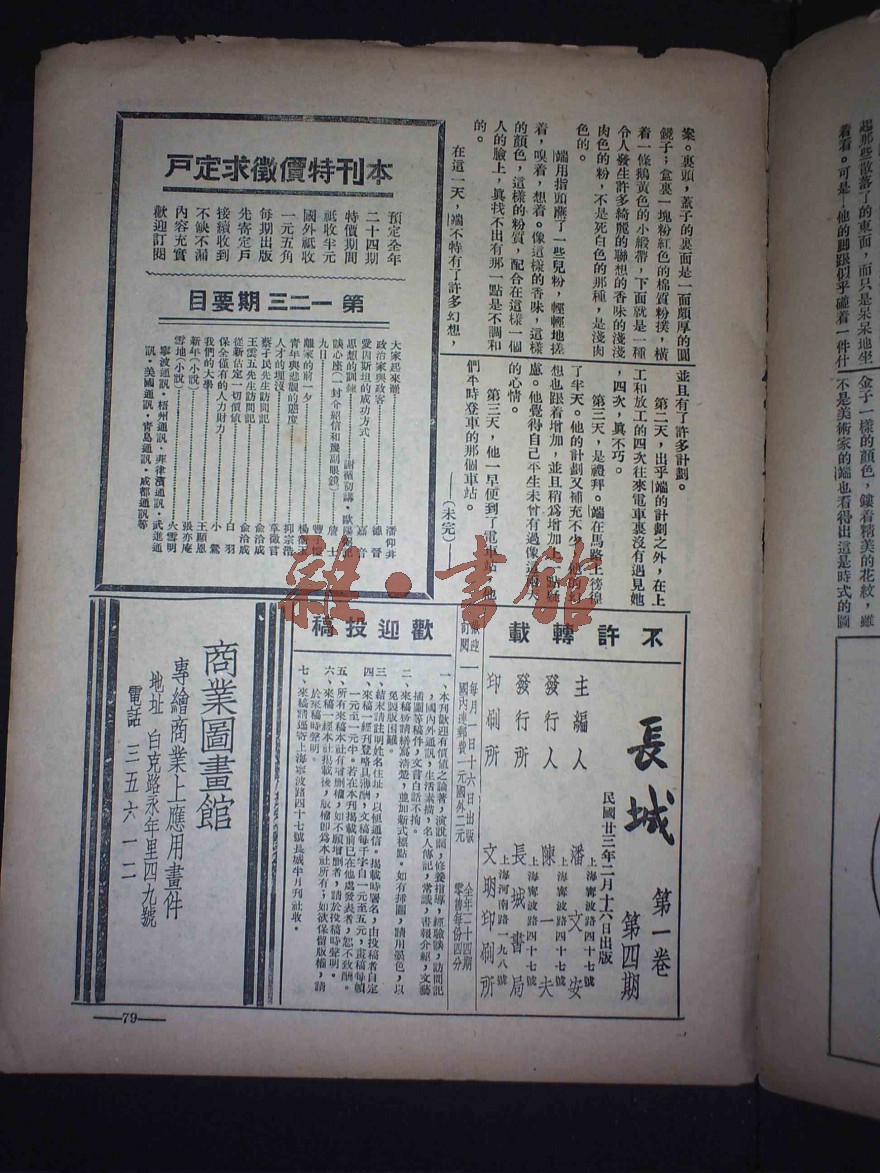 案。裏頭，蓋子的裏面是一面頗厚的圓
鏡子；盒裏一塊粉紅色的棉質粉撲，橫
着一條鵝黃色的小緞帶，下面就是一種
令人發生許多綺麗的聯想的香味的淺淺
肉色的粉，不是死白色的那種，是淺肉
色的。
端用指頭蘸了一些兒粉，輕輕地搓
着，嗅着，想着。像這樣的香味，這樣
的顏色，這樣的粉質，配合在這樣一個
人的臉上，眞找不出有那一點是不調和
的。
在這一天，端不特有了許多幻想，
並且有了許多計劃。
第二天，出乎端的計劃之外，在上
工和放工的四次往來電車裏沒有遇見她
，四次，眞不巧。
第三天，是禮拜。端在馬路上徬徨
了半天。他的計劃又補充不少，他的幻
想也跟着增加，並且稍爲增加上一點
慮。他覺得自己平生未曾有過像這
的心情。
第三天，他一早便到了電車站，他
們平時登車的那個車站。
——（未完）——
本刊特價徵求定戶
預定全年
二十四期
特價期間
祗收半元
國外祗收
一元五角
每期出版
先寄定戶
接續收到
不缺不漏
內容充實
歡迎訂閱
第一二三期要目
大家起來罷……潘仰堯
政治家與政客……德晉
愛因斯坦的成功方式……嘉音
思想的訓練……謝循初講·歐陽
談心座（一封介紹信和幾副眼鏡）……詹士
九日……豐子愷
離家的前一夕……楊
青年與悲觀的態度……鄭宗海
人才的埋沒……章徵言
蔡孑民先生訪問記……俞洽成
王雲五先生訪問記……俞洽成
從新估定一切價值……白羽
保全僅有的人力財力……小鶯
我們的大學……王顯恩
新年（小說）……張亦庵
雪地（小說）……火雪明
寧波通訊·梧州通訊·菲律濱通訊·武進通
訊·美國通訊·青島通訊·成都通訊等
不許轉載
長城
第一卷
第四期
民國廿三年二月十六日出版
主編人
潘文安
上海寧波路四十七號
發行人
陳一夫
上海寧波路四十七號
發行所
長城書局
上海寧波路四十七號
印刷所
文明印刷所
上海河南路一九八號
每月一日十六日出版
全年二十四期
歡迎訂閱
國內連郵費一元國外二元
零售每份四分
歡迎投稿
一、本刊歡迎有價值之論著，演說詞，修養指導，經驗談，訪問記
，國內外通訊，生活素描，名人傳記，常識，書報介紹，文藝
插圖等稿件，文言白話不拘。
二、來稿務請繕寫清楚，並加新式標點。如有插圖，請用墨色，以
免製版困難。
三、稿末請註明姓名住址，以便通信。揭載時署名，由投稿者自定
四、來稿一經刊登略具薄酬，文稿每千字自一元至五元，畫稿每幀
一元至二元半。若在本刊揭載前已在他處發表者，恕不致酬。
五、所有來稿本社有增刪權，如不願增刪者，請於投稿時聲明。
六、來稿一經本社揭載後，版權卽爲本社所有；如欲保留版權，請
於來稿時聲明。
七、來稿請逕寄上海寧波路四十七號長城半月刊社收。
商業圖畫館
專繪商業上應用畫件
地址 白克路永年里四九號
電話 三五六一二
—79—
起那些散落了的東西，而只是呆呆地坐
着看。可是—他的脚跟似乎碰着一件什
金子一樣的顏色，鏤着精美的花紋，雖
不是美術家的端也看得出這是時式的圖
雜·書館